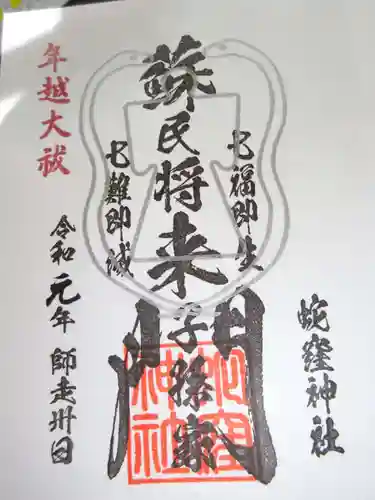 蛇窪神社
七福即生
蘇民将来子孫家門
七難即滅
年越大祓
令和元年師走卅日
蛇窪神社